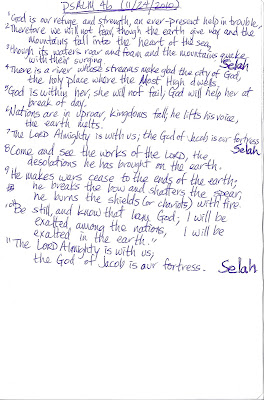 PSALM 46 (11/24/2010)
1God is our refuge and strength, an ever-present help in trouble.
2Therefore we will not fear, though the earth give way and the
mountains fall into the heart of the sea,
3though its waters roar and foam and the mountains quake
with their surging. Selah
4There is a river whose streams make glad the city of God,
the holy place where the Most High dwells.
5God is within her, she will not fail; God will help her at
break of day.
6Nations are in uproar, kingdoms fall; he lifts his voice,
the earth melts.
7The LORD Almighty is with us; the God of Jacob is our fortress
Selah
8Come and see the works of the LORD, the
desolations he has brought on the earth.
9He makes wars cease to the ends of the earth;
he breaks the bow and shatters the spear,
he burns the shields (or chariots) with fire.
10"Be still, and know that I am God; I will be
exalted, among the nations, I will be
exalted in the earth."
11The LORD Almighty is with us;
the God of Jacob is our fortress. Selah